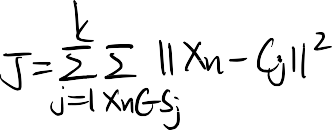 J = \sum_{j=1}^{k} \sum_{x_n \in S_j} \| x_n - C_j \|^2